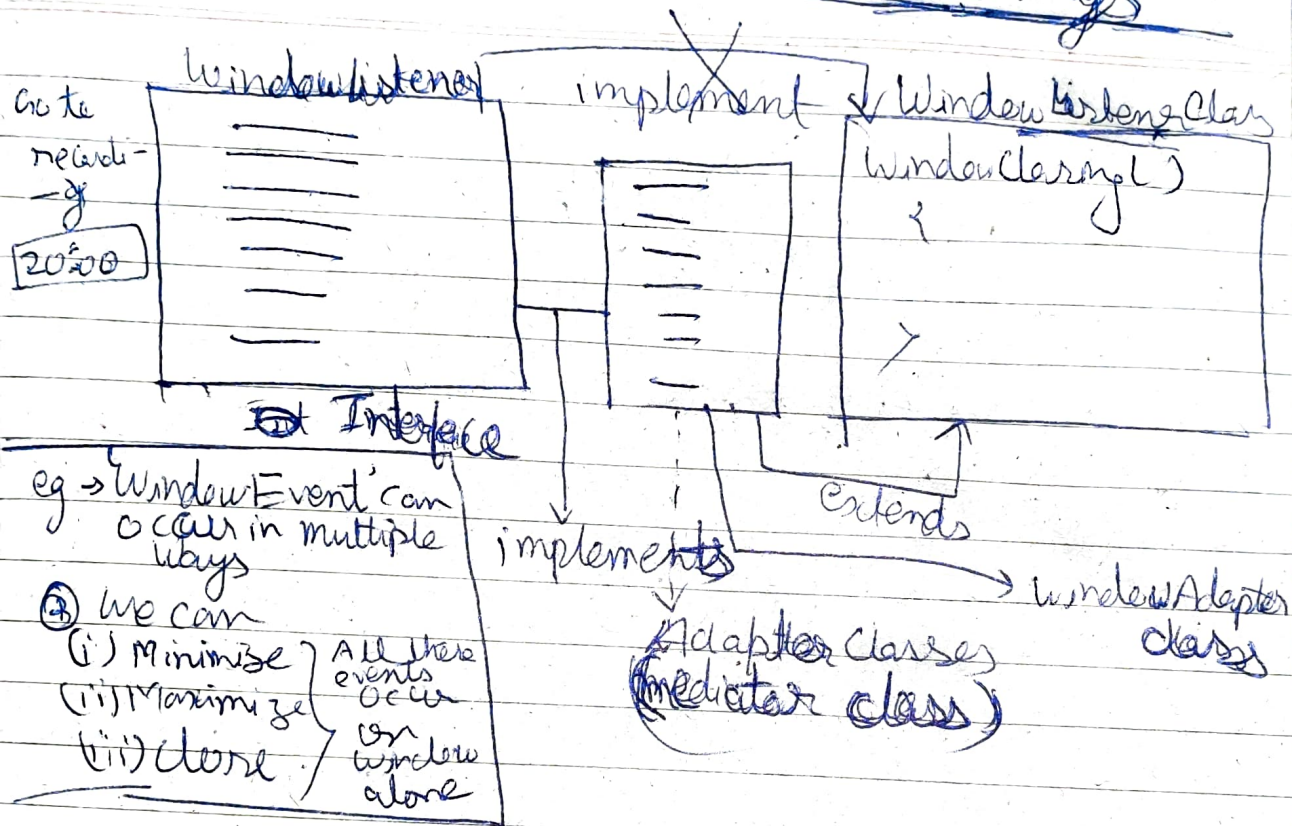 WindowListener
implement
WindowListenerClass
Go to
recordi-
-g
20:00
WindowClosing()
{
}
Interface
extends
implements
WindowAdapter
class
Adapter Classes
(mediator class)
eg → 'WindowEvent' can
occur in multiple
ways
we can
(i) Minimize
(ii) Maximize
(iii) close
All these
events
occur
on
window
alone